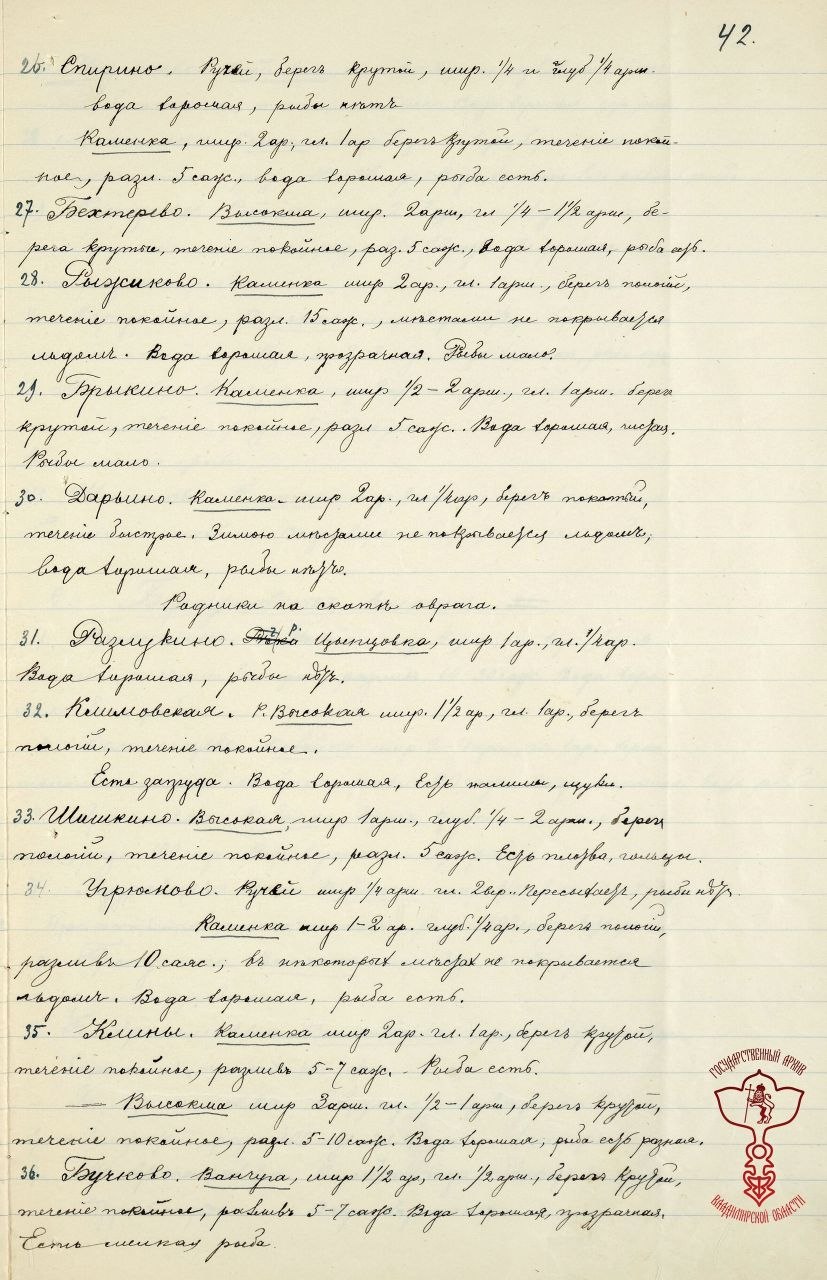 42.
26. Спирино. Ручей, берегъ крутой, шир. 1/4 и глуб 1/4 арш.
вода хорошая, рыбы нѣтъ
Каменка, шир. 2 ар., гл. 1 ар берегъ крутой, теченіе покой-
ное, разл. 5 саж., вода хорошая, рыба есть.
27. Бехтерево. Высокша, шир. 2 арш, гл 1/4 – 1 1/2 арш, бе-
рега крутые, теченіе покойное, раз. 5 саж., вода хорошая, рыба есть.
28. Рыжиково. Каменка шир 2 ар., гл. 1 арш., берегъ пологій,
теченіе покойное, разл. 15 саж., мѣстами не покрывается
льдомъ. Вода хорошая, прозрачная. Рыбы мало.
29. Брыкино. Каменка, шир 1/2 – 2 арш., гл. 1 арш. берегъ
крутой, теченіе покойное, разл 5 саж.. Вода хорошая, чистая.
Рыбы мало.
30. Дарьино. Каменка шир 2 ар., гл 1/4 ар, берегъ покатый,
теченіе быстрое. Зимою мѣстами не покрывается льдомъ,
вода хорошая, рыбы нѣтъ.
Родники на скатѣ оврага.
31. Разлукино. р. Цынцовка, шир 1 ар., гл. 1/4 ар.
Вода хорошая, рыбы нѣтъ.
32. Климовская. Р. Высокая шир. 1 1/2 ар, гл. 1 ар., берегъ
пологій, теченіе покойное.
Есть запруда. Вода хорошая, Есть налимы, щуки.
33. Шишкино. Высокая, шир 1 арш., глуб. 1/4 – 2 арш., берегъ
пологій, теченіе покойное, разл. 5 саж. Есть плотва, гольцы.
34. Угрюмово. Ручей шир 1/4 арш гл. 2 вер. Пересыхаетъ, рыбы нѣтъ.
Каменка шир 1–2 ар. глуб. 1/4 ар., берегъ пологій,
разливъ 10 саж.; въ нѣкоторыхъ мѣстахъ не покрывается
льдомъ. Вода хорошая, рыба есть.
35. Клины. Каменка шир 2 ар. гл. 1 ар., берегъ крутой,
теченіе покойное, разливъ 5–7 саж. Рыба есть.
— Высокша шир 3 арш. гл. 1/2 – 1 арш, берегъ крутой,
теченіе покойное, разл. 5–10 саж. Вода хорошая, рыба есть разная.
36. Бучково. Ванчуга, шир 1 1/2 ар, гл. 1/2 арш., берегъ крутой,
теченіе покойное, разливъ 5–7 саж. Вода хорошая, прозрачная.
Есть мелкая рыба.
ГОСУДАРСТВЕННЫЙ АРХИВ
ВЛАДИМИРСКОЙ ОБЛАСТИ